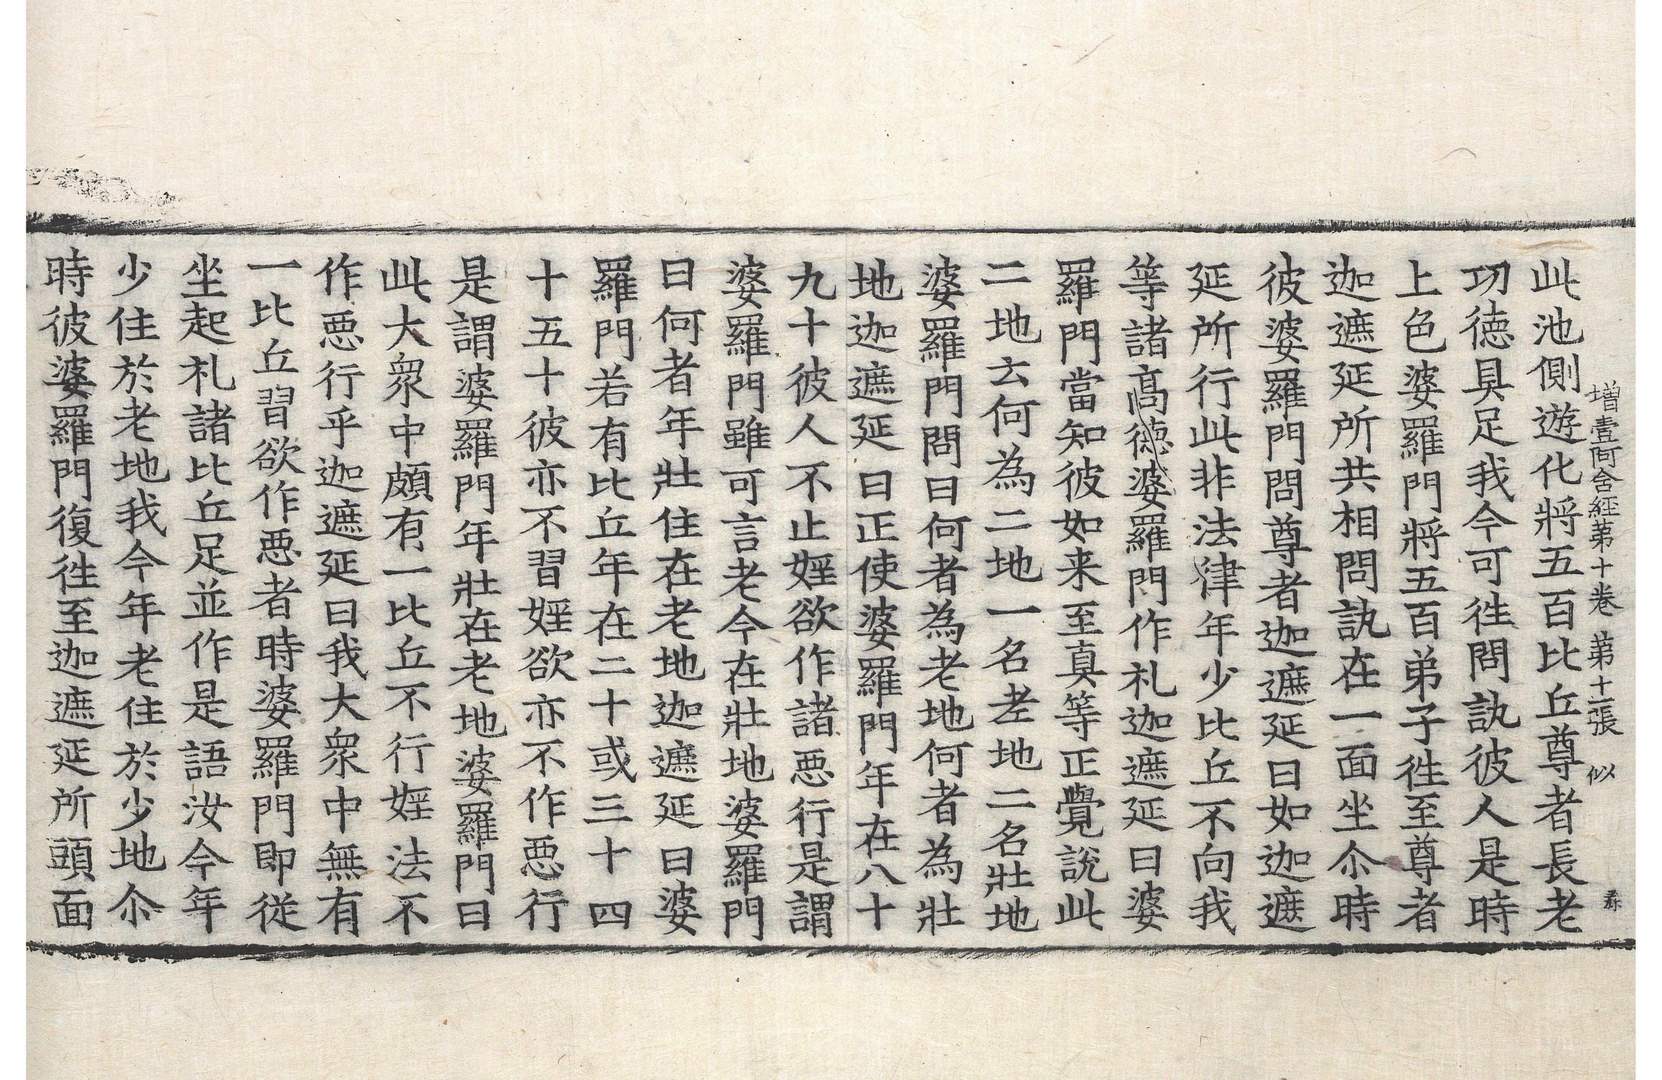 增壹阿含經第十卷 第十二張 似
此池側遊化將五百比丘尊者長老
功德具足我今可往問訊彼人是時
上色婆羅門將五百弟子往至尊者
迦遮延所共相問訊在一面坐尒時
彼婆羅門問尊者迦遮延曰如迦遮
延所行此非法律年少比丘不向我
等諸高德婆羅門作礼迦遮延曰婆
羅門當知彼如来至真等正覺說此
二地云何為二地一名老地二名壯地
婆羅門問曰何者為老地何者為壯
地迦遮延曰正使婆羅門年在八十
九十彼人不止婬欲作諸惡行是謂
婆羅門雖可言老今在壯地婆羅門
曰何者年壯住在老地迦遮延曰婆
羅門若有比丘年在二十或三十四
十五十彼亦不習婬欲亦不作惡行
是謂婆羅門年壯在老地婆羅門曰
此大衆中頗有一比丘不行婬法不
作惡行乎迦遮延曰我大衆中無有
一比丘習欲作惡者時婆羅門即從
坐起礼諸比丘足並作是語汝今年
少住於老地我今年老住於少地尒
時彼婆羅門復往至迦遮延所頭面